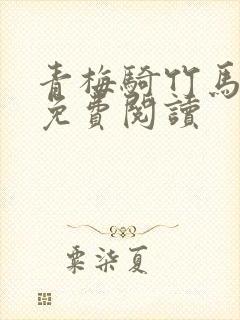 青梅騎竹馬
免費閱讀
粟柒夏